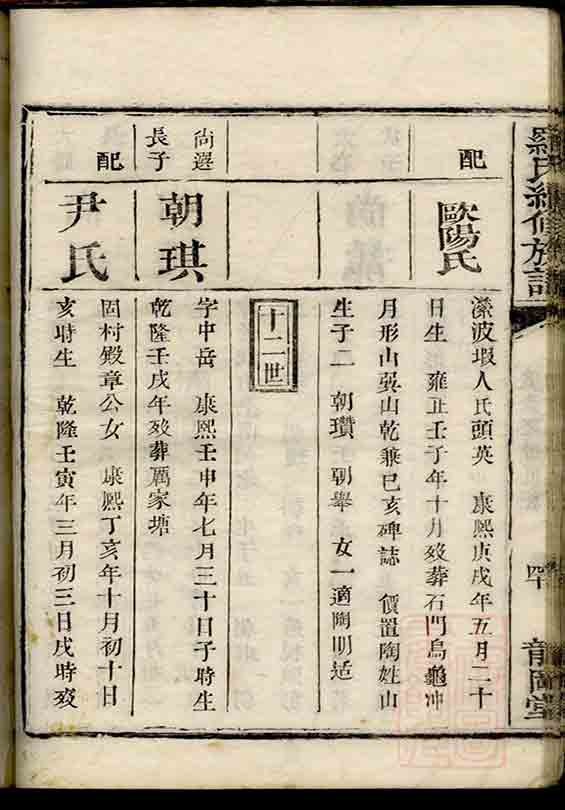 羅氏續修族譜
四十
龍岡堂
配
歐陽氏
濚波塅人氏頭英 康熙庚戌年五月二十
日生 雍正壬子年十月歿葬石門烏龜冲
月形山巽山乾兼巳亥碑誌 價置陶姓山
生子二 朝瓚 朝舉 女一適陶明适
十二世
尙選
長子
朝琪
字中岳 康熙壬申年七月三十日子時生
乾隆壬戌年歿葬厲家塘
配
尹氏
固村殿章公女 康熙丁亥年十月初十日
亥時生 乾隆壬寅年三月初三日戌時歿